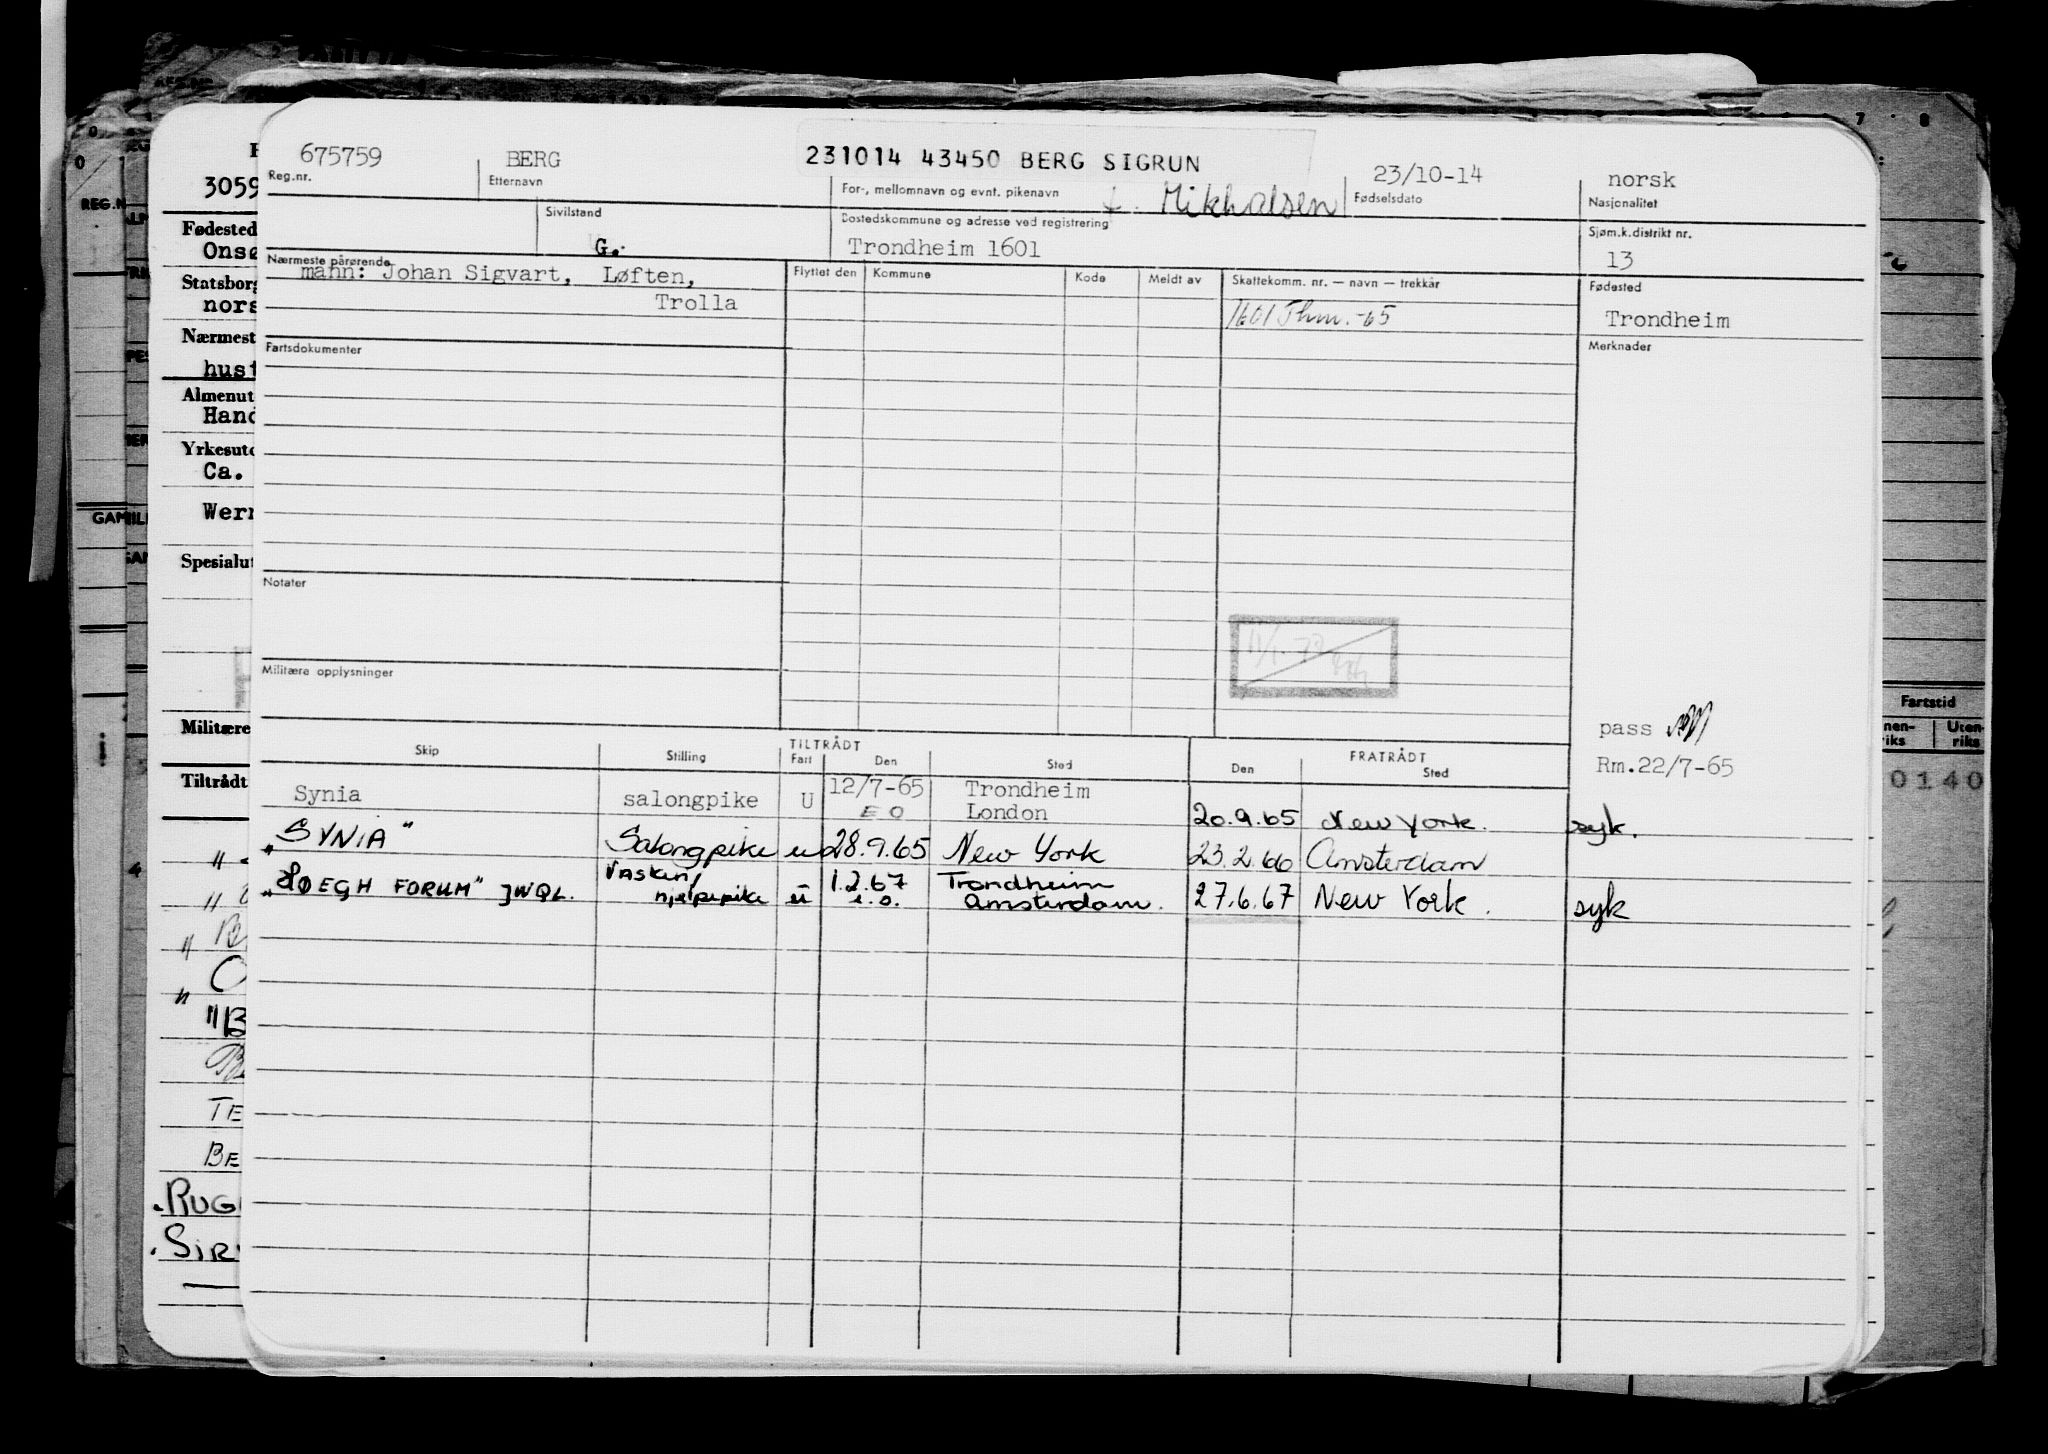 675759 BERG 231014 43450 BERG SIGRUN 23/10-14 norsk
Reg.nr. Etternavn For-, mellomnavn og evnt. pikenavn f. Mikhalsen Fødselsdato Nasjonalitet
Sivilstand Bostedskommune og adresse ved registrering Sjøm.k.distrikt nr.
G. Trondheim 1601 13
Nærmeste pårørende Flyttet den Kommune Kode Meldt av Skattekomm. nr. — navn — trekkår Fødested
mann: Johan Sigvart, Løften,
Trolla 1601 Thm.-65 Trondheim
Fartsdokumenter Merknader
Notater
Militære opplysninger
pass
Rm.22/7-65
Skip Stilling TILTRÅDT Fart Den Sted FRATRÅDT Den Sted
Synia salongpike U 12/7-65 Trondheim
EO London 20.9.65 New York. syk.
"SYNIA" Salongpike u 28.9.65 New York 23.2.66 Amsterdam
"HØEGH FORUM" JWQL. Vaskeri/ 1.2.67 Trondheim
hjelpepike u e.o. Amsterdam. 27.6.67 New York. syk
3059
Fødested
Onsø
Statsborg
nors
Nærmest
hust
Almenut
Hand
Yrkesutd
Ca.
Wern
Spesialut
Militære
Tiltrådt
TE
BE
RUG
SIR
REG.N
GAM
7 8
Fartstid
nen-riks Uten-riks
0140